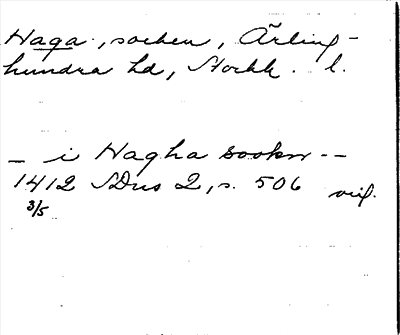 Haga, socken, Ärling-
hundra hd, Stockh. l.
_ i Hagha sookn --
1412 SDns 2, s. 506 vid.
3/5